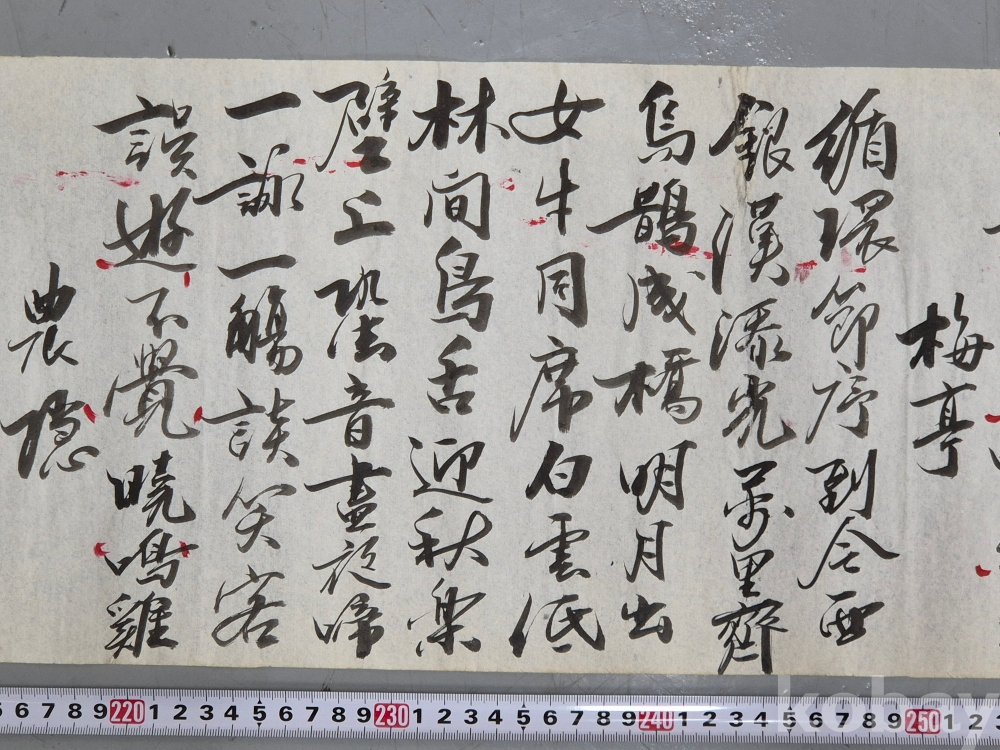 梅亭
循環節序到今西
銀漢添光萬里齊
烏鵲成橋明月出
女牛同席白雲低
林間鳥舌迎秋樂
壁上蛩音晝夜啼
一一觴談笑客
誤遊不覺曉鳴雞
農隱
6 7 8 9 220 1 2 3 4 5 6 7 8 9 230 1 2 3 4 5 6 7 8 9 240 1 2 3 4 5 6 7 8 9 250 1 2 3
kobay